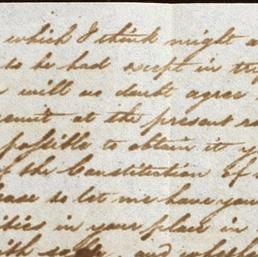 which I think might a
to be had except in the
will no doubt agree
at the present
possible to obtain it y
of the Constitution of
please to let me have your
in your place in
with and